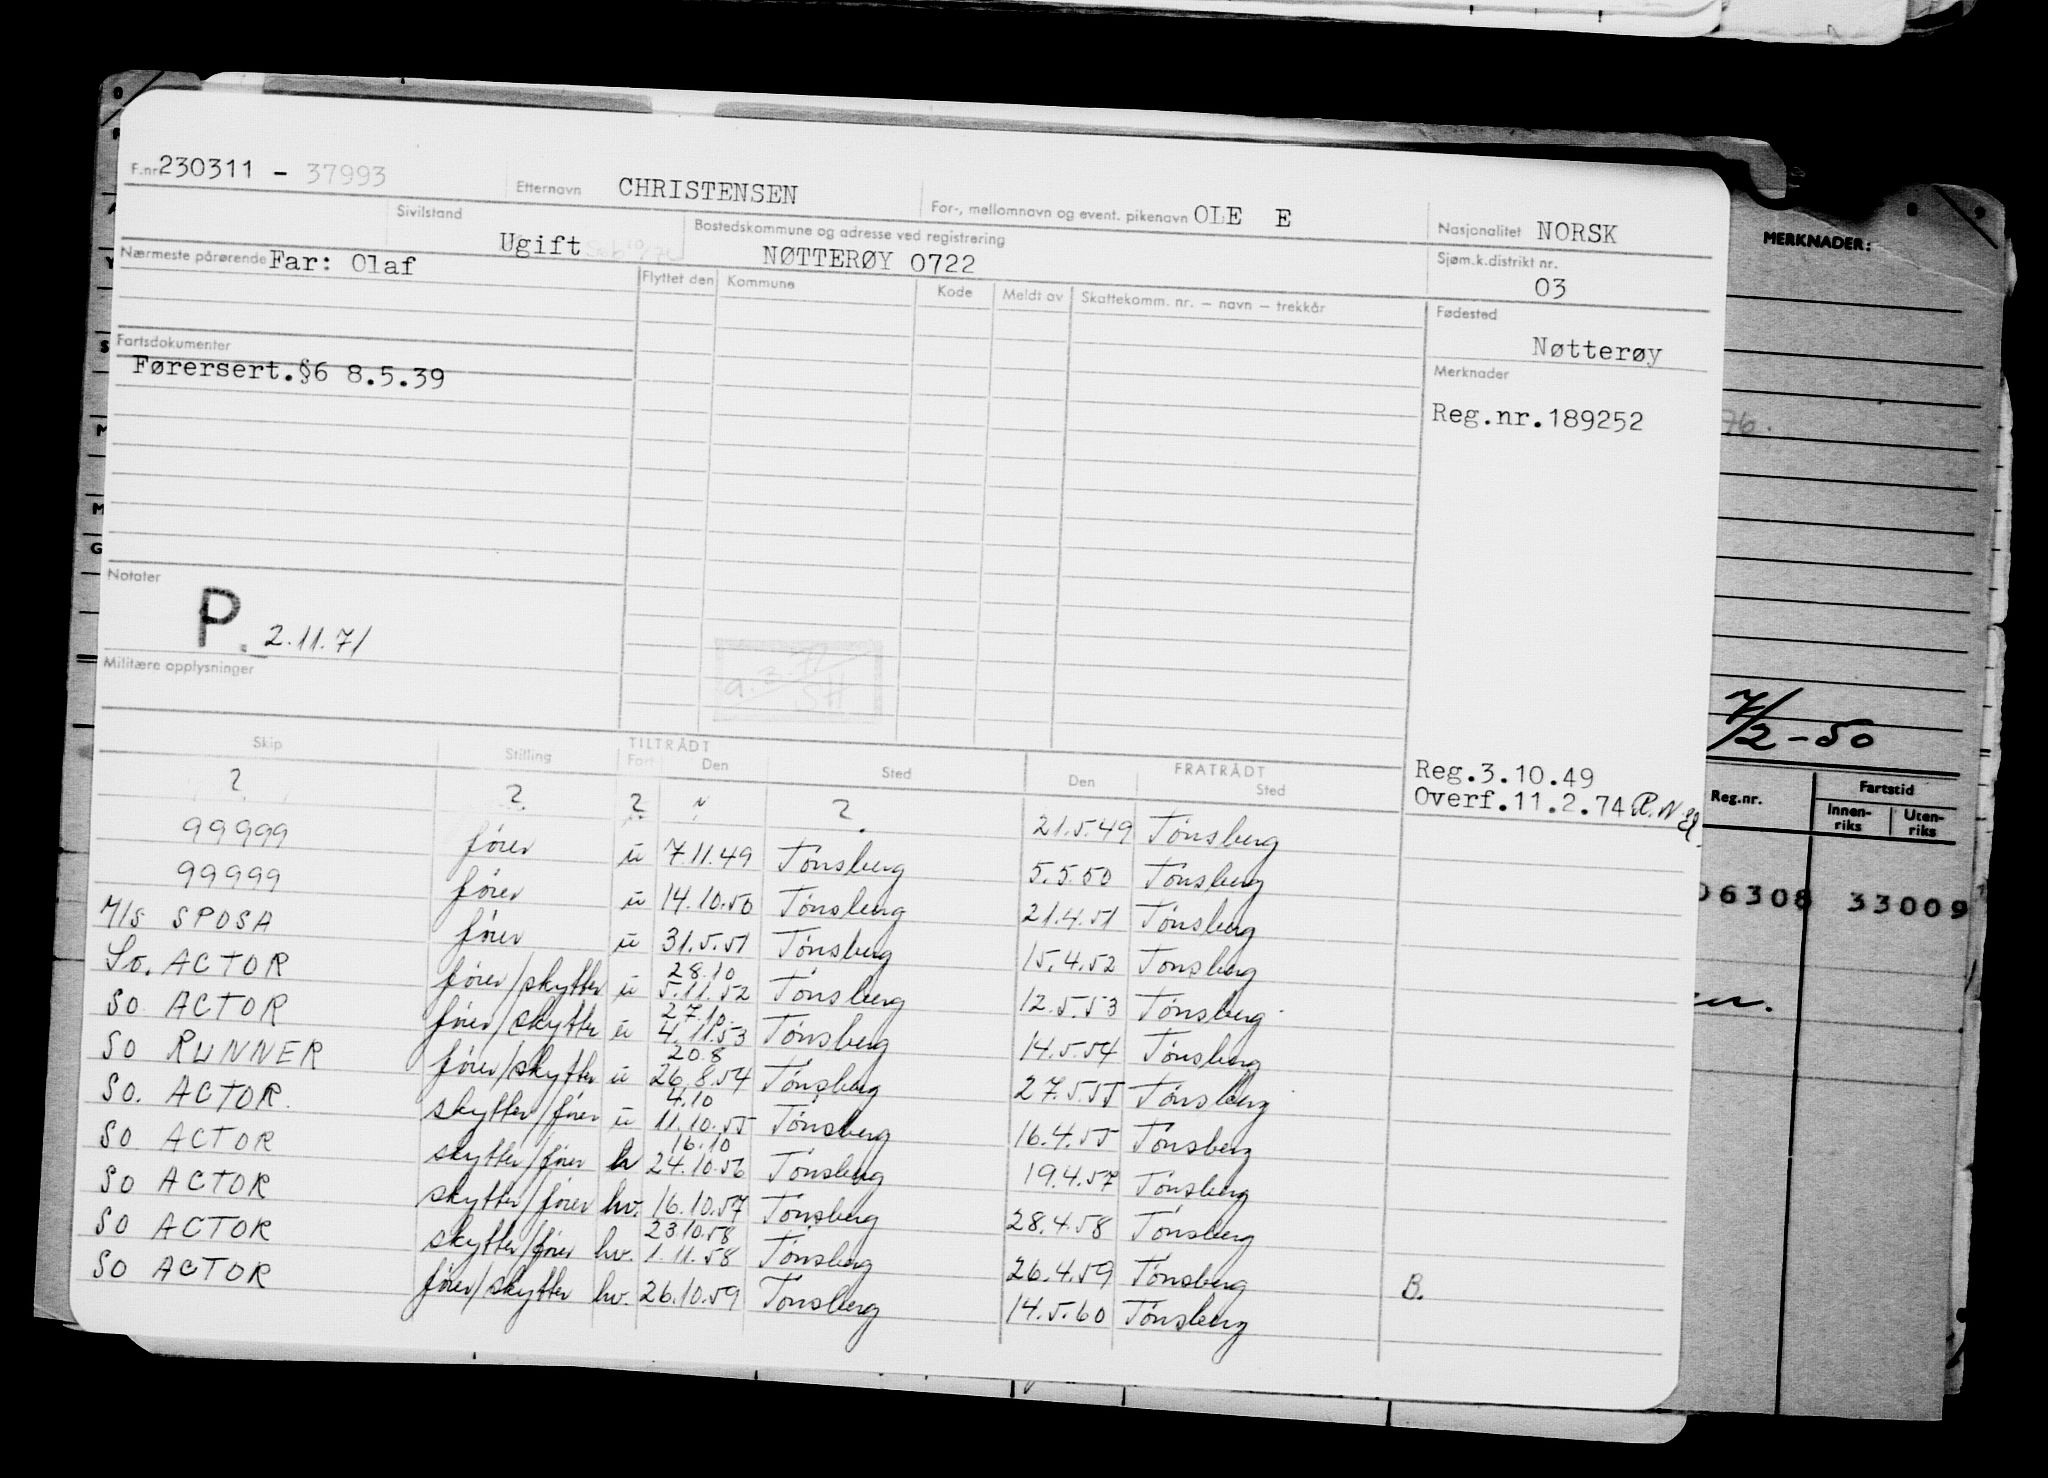 F.nr. 230311 - 37993 Etternavn CHRISTENSEN For-, mellomnavn og event. pikenavn OLE E Nasjonalitet NORSK
Sivilstand Ugift Bostedskommune og adresse ved registrering NØTTERØY 0722 Sjøm.k.distrikt nr. 03
Nærmeste pårørende Far: Olaf Flyttet den Kommune Kode Meldt av Skattekomm. nr. – navn – trekkår Fødested
Nøtterøy
Fartsdokumenter Merknader
Førersert.§6 8.5.39
Reg.nr.189252
Notater
P. 2.11.71
Militære opplysninger
Skip Stilling TILTRÅDT Fart Den Sted FRATRÅDT Den Sted
Reg.3.10.49
Overf.11.2.74
? ? ? ? 21.5.49 Tønsberg
99999 fører u 7.11.49 Tønsberg 5.5.50 Tønsberg
99999 fører u 14.10.50 Tønsberg 21.4.51 Tønsberg
M/S SPOSA fører u 31.5.51 Tønsberg 15.4.52 Tønsberg
28.10
So. ACTOR fører/skytter u 5.11.52 Tønsberg 12.5.53 Tønsberg
27.10.
SO ACTOR fører/skytter u 4.11.53 Tønsberg 14.5.54 Tønsberg
20.8
SO RUNNER fører/skytter u 26.8.54 Tønsberg 27.5.55 Tønsberg
4.10
SO. ACTOR. skytter/fører u 11.10.55 Tønsberg 16.4.55 Tønsberg
16.10
SO ACTOR skytter/fører hv 24.10.56 Tønsberg 19.4.57 Tønsberg
SO ACTOR skytter/fører hv. 16.10.57 Tønsberg 28.4.58 Tønsberg
23.10.58
SO ACTOR skytter/fører hv. 1.11.58 Tønsberg 26.4.59 Tønsberg
SO ACTOR fører/skytter hv. 26.10.59 Tønsberg 14.5.60 Tønsberg
B.
MERKNADER:
76.
7/2-50
Reg.nr. Fartstid
Innen-
riks Uten-
riks
06308 33009